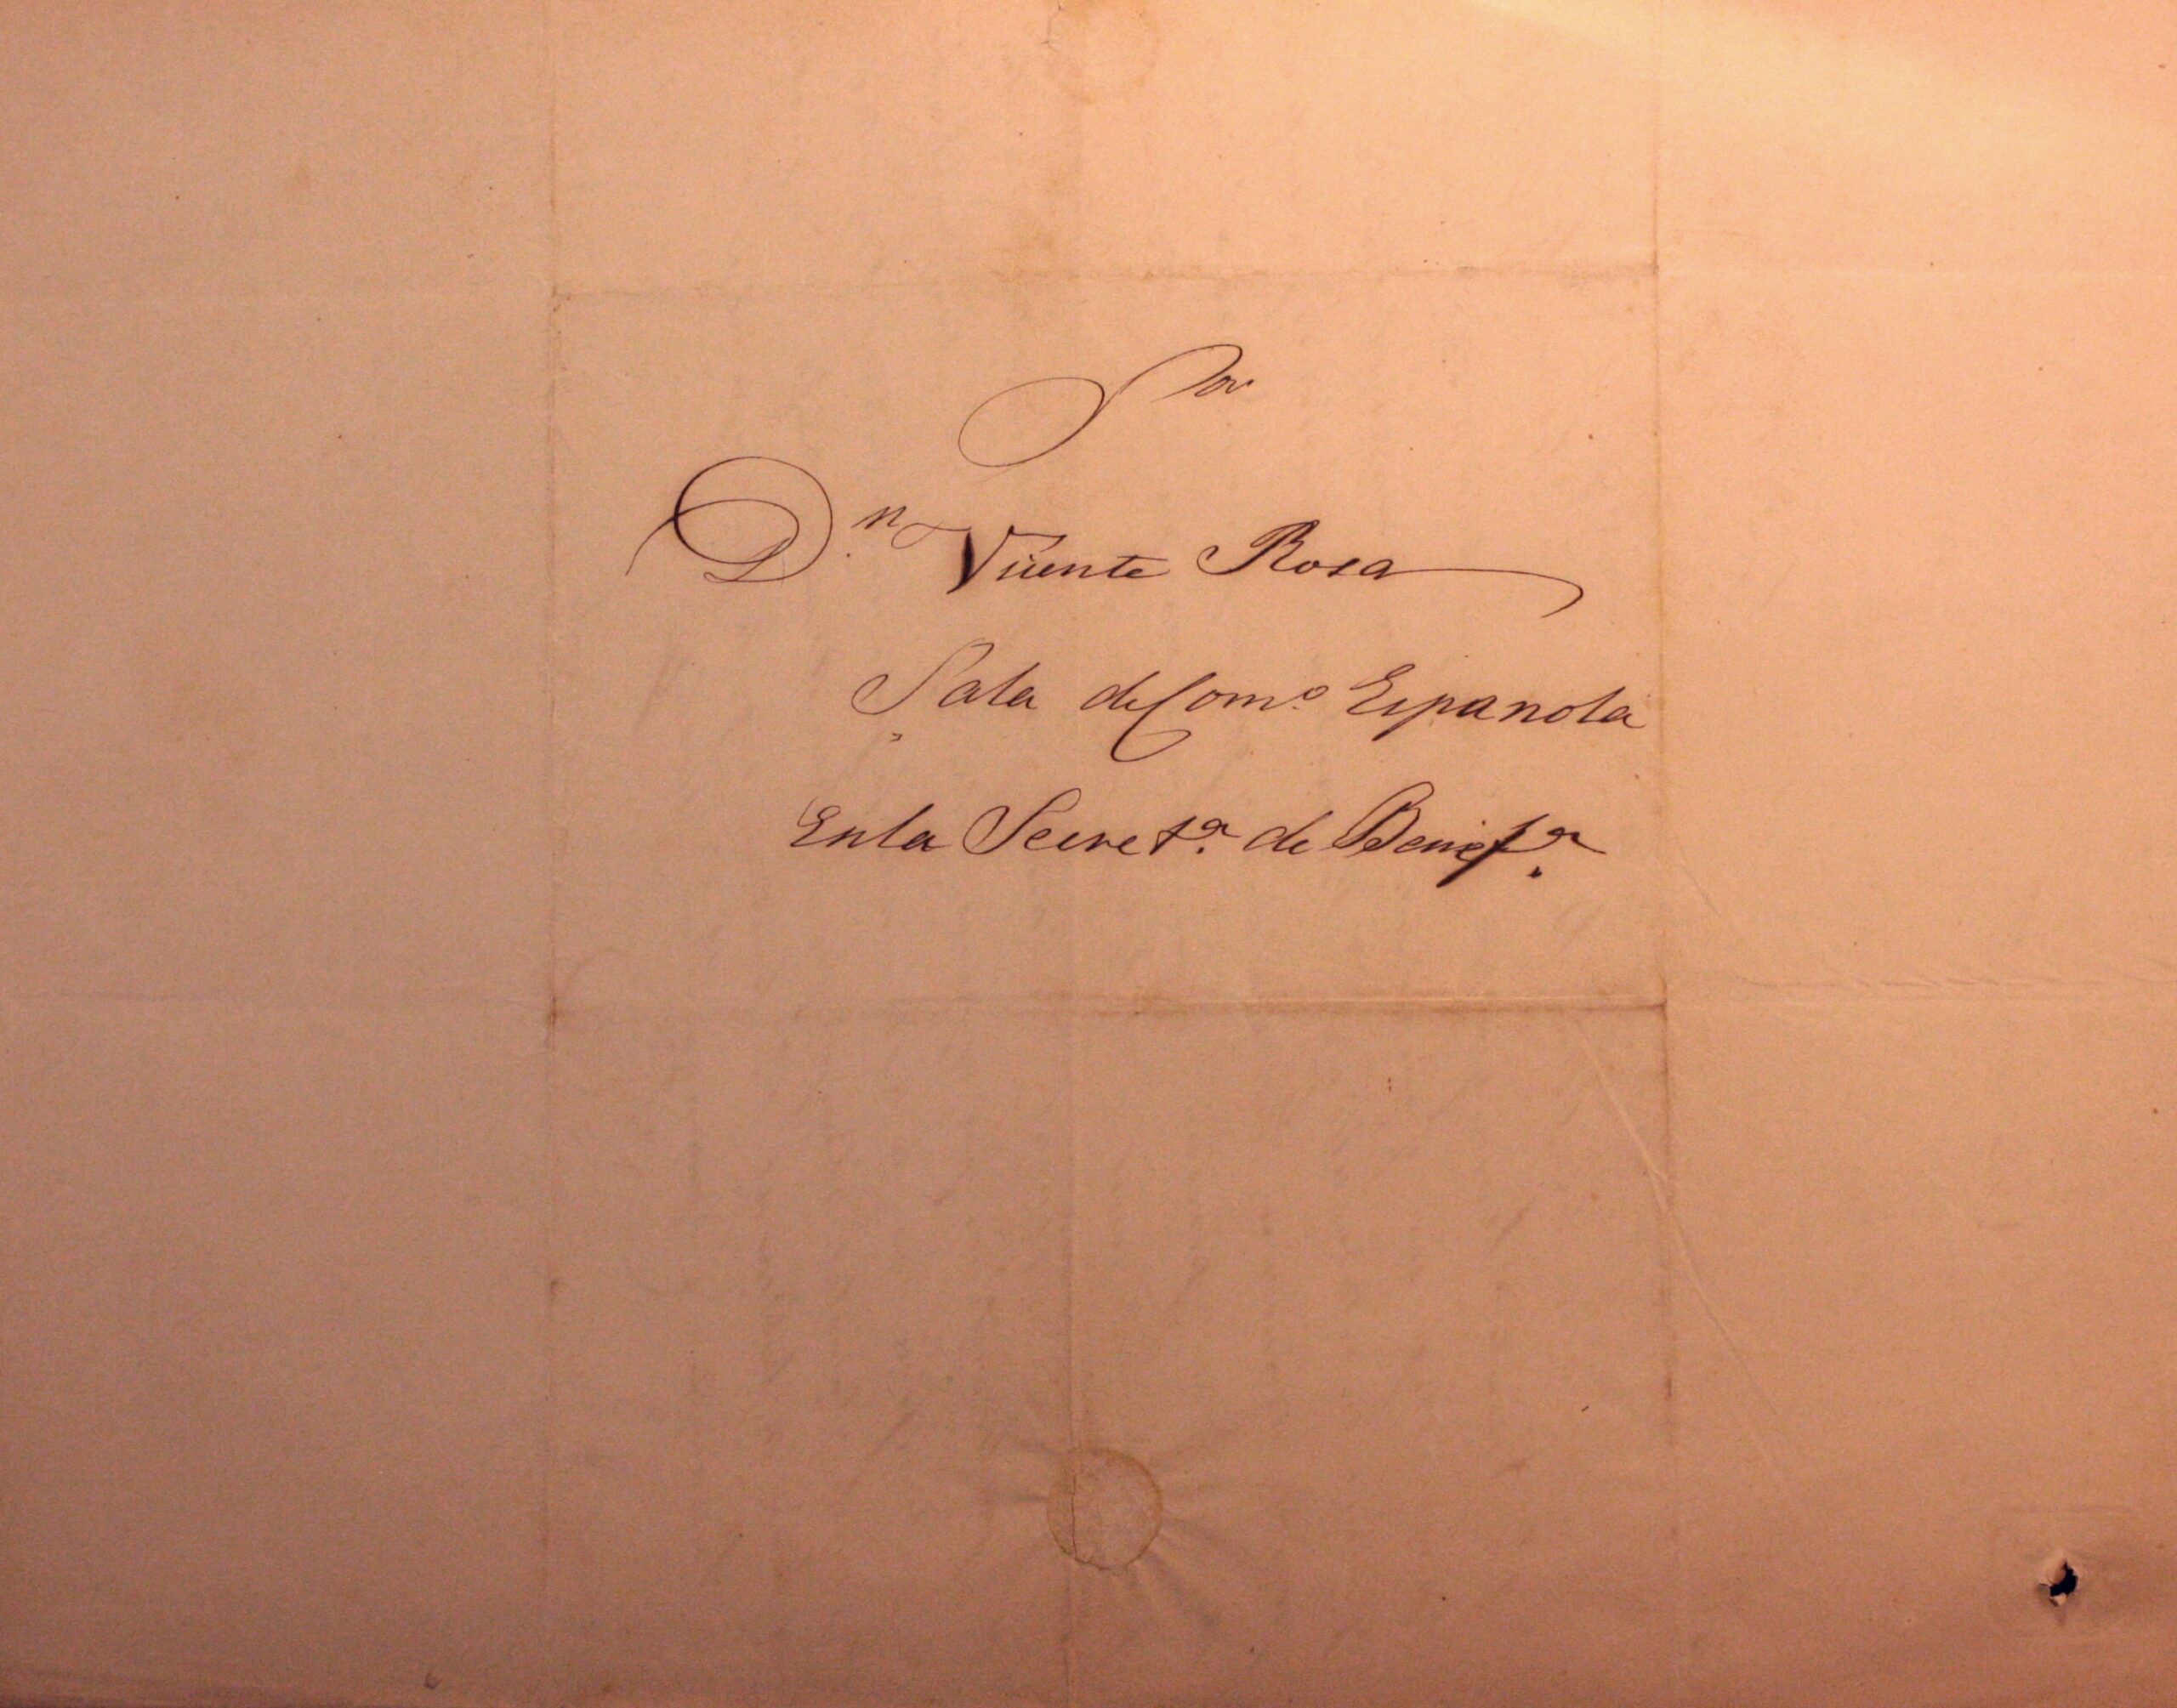 Sor
Dn. Vicente Rosa
Sala de Como. Espanola
En la Secreta. de Benefa.